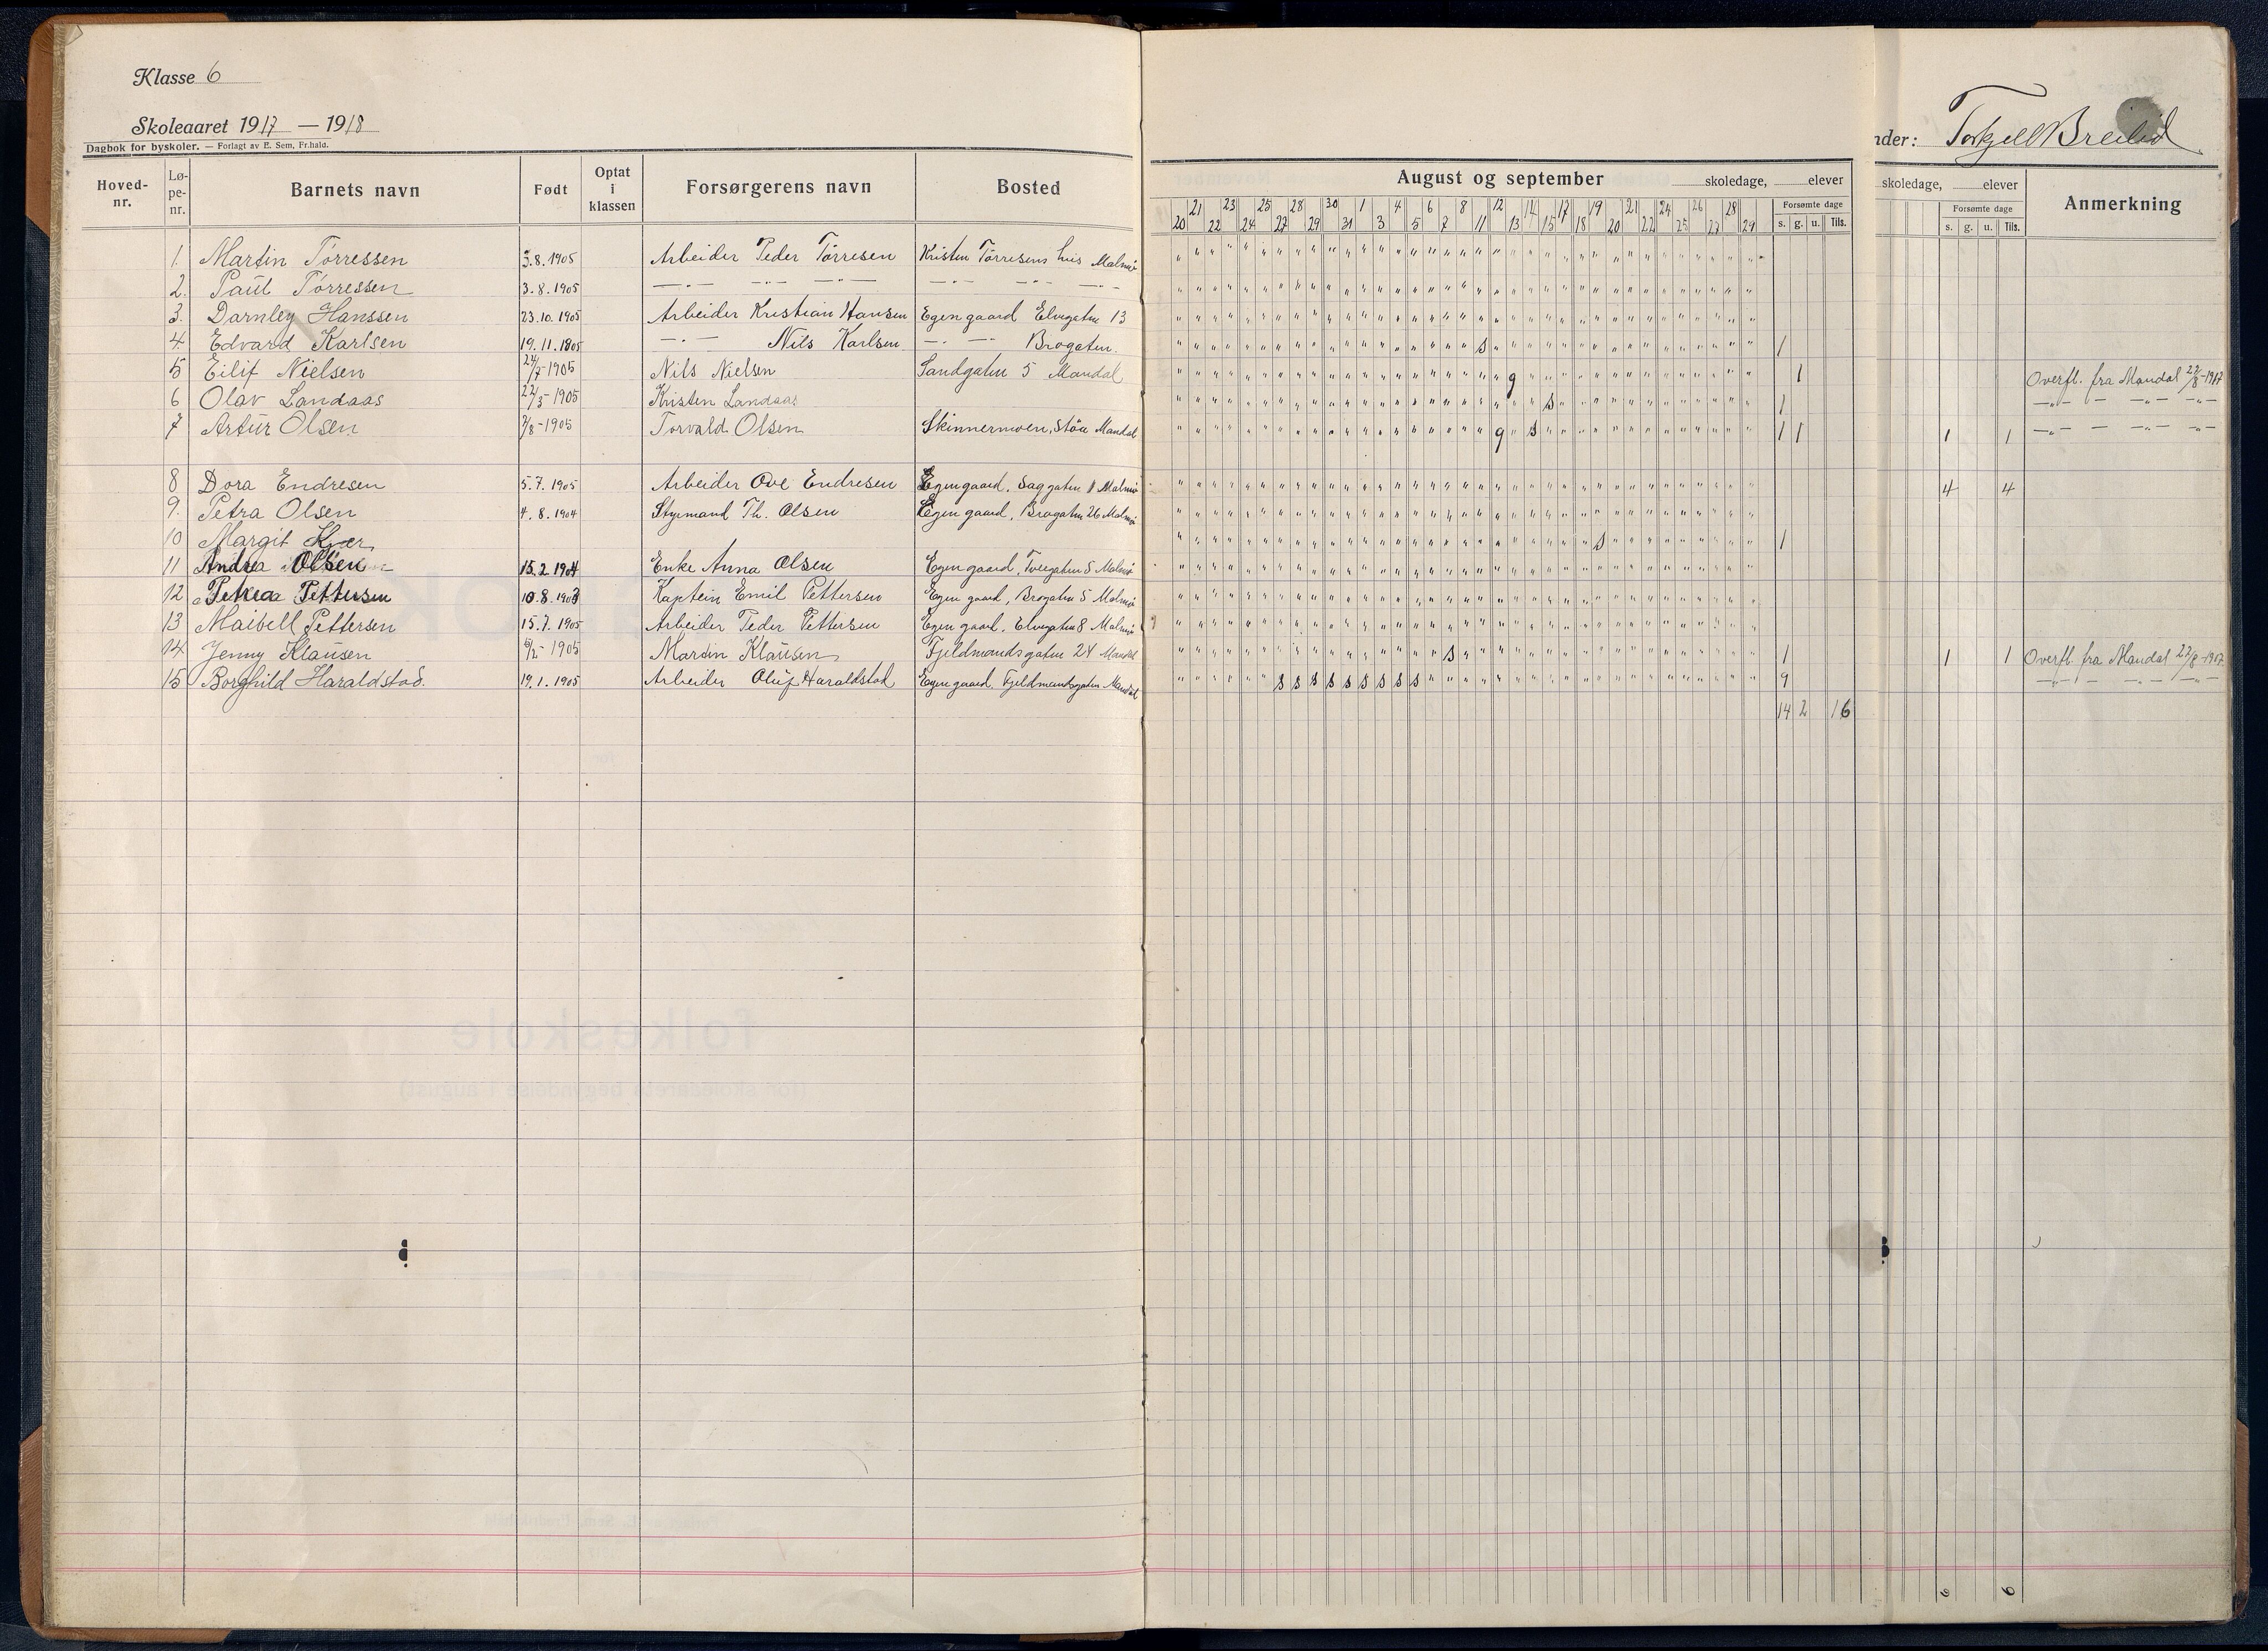 Klasse 6
Skoleaaret 1917 — 1918
Dagbok for byskoler. — Forlagt av E. Sem, Fr.hald.
nder: Torkjell Breilid
Hoved-nr. Lø-pe-nr. Barnets navn Født Optat i klassen Forsørgerens navn Bosted
August og september skoledage, elever
skoledage, elever Anmerkning
20 21 22 23 24 25 27 28 29 30 31 1 3 4 5 6 7 8 11 12 13 14 15 17 18 19 20 21 22 24 25 26 27 28 29
Forsømte dage s. g. u. Tils.
Forsømte dage s. g. u. Tils.
1. Martin Tørressen 3.8.1905 Arbeider Peder Tørresen Kristen Tørresens hus Malmø
2. Paul Tørressen 3.8.1905 —"— —"— —"— —"— —"— —"—
3. Darnley Hanssen 23.10.1905 Arbeider Kristian Hansen Egen gaard Elvegaten 13
4. Edvard Karlsen 19.11.1905 —"— Nils Karlsen —"— —"— Brogaten. s 1
5 Eilif Nielsen 24/7-1905 Nils Nielsen Sandgaten 5 Mandal g 1 Overfl. fra Mandal 22/8-1917
6 Olav Landaas 22/3-1905 Kristen Landaas s 1 —"— — —"— —"—
7 Artur Olsen 7/8-1905 Torvald Olsen Skinnermoen, Støa Mandal g s 1 1 1 1 —"— — —"— —"—
8 Dora Endresen 5.7.1905 Arbeider Ove Endresen Egen gaard. Saggaten 11 Malmø 4 4
9. Petra Olsen 4.8.1904 Styrmand Th. Olsen Egen gaard, Brogaten 26 Malmø
10 Margit Kjær s 1
11 Andrea Olsen 15.2.1904 Enke Anna Olsen Egen gaard, 5 Malmø
12 Petrea Pettersen 10.8.1903 Kaptein Emil Pettersen Egen gaard, Brogaten 5 Malmø
13 Maibell Pettersen 15.7.1905 Arbeider Peder Pettersen Egen gaard, Elvegaten 8 Malmø
14 Jenny Klausen 1905 Martin Klausen Fjeldmandsgaten 24 Mandal s 1 1 1 Overfl. fra Mandal 22/8-1917
15 Borghild Haraldstad. 19.1.1905 Arbeider Oluf Haraldstad Egen gaard. Fjeldmandsgaten Mandal s s s s s s s s s 9 —"— — —"— —"—
14 2 16
6 6